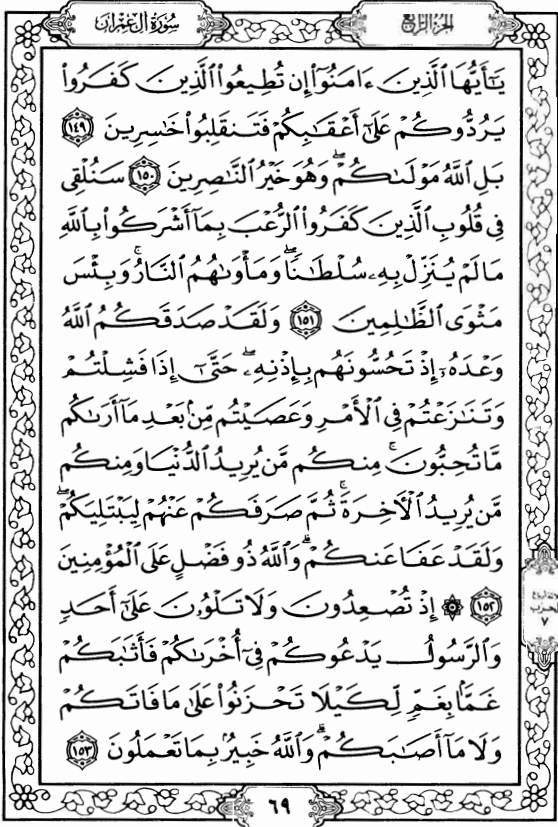 سُورَةُ آلِ عِمْرَانَ
الجُزْءُ الرَّابِعُ
يَـٰٓأَيُّهَا ٱلَّذِينَ ءَامَنُوٓا۟ إِن تُطِيعُوا۟ ٱلَّذِينَ كَفَرُوا۟
يَرُدُّوكُمْ عَلَىٰٓ أَعْقَـٰبِكُمْ فَتَنقَلِبُوا۟ خَـٰسِرِينَ ١٤٩
بَلِ ٱللَّهُ مَوْلَىٰكُمْ ۖ وَهُوَ خَيْرُ ٱلنَّـٰصِرِينَ ١٥٠ سَنُلْقِى
فِى قُلُوبِ ٱلَّذِينَ كَفَرُوا۟ ٱلرُّعْبَ بِمَآ أَشْرَكُوا۟ بِٱللَّهِ
مَا لَمْ يُنَزِّلْ بِهِۦ سُلْطَـٰنًا ۖ وَمَأْوَىٰهُمُ ٱلنَّارُ ۚ وَبِئْسَ
مَثْوَى ٱلظَّـٰلِمِينَ ١٥١ وَلَقَدْ صَدَقَكُمُ ٱللَّهُ
وَعْدَهُۥٓ إِذْ تَحُسُّونَهُم بِإِذْنِهِۦ ۖ حَتَّىٰٓ إِذَا فَشِلْتُمْ
وَتَنَـٰزَعْتُمْ فِى ٱلْأَمْرِ وَعَصَيْتُم مِّنۢ بَعْدِ مَآ أَرَىٰكُم
مَّا تُحِبُّونَ ۚ مِنكُم مَّن يُرِيدُ ٱلدُّنْيَا وَمِنكُم
مَّن يُرِيدُ ٱلْـَٔاخِرَةَ ۚ ثُمَّ صَرَفَكُمْ عَنْهُمْ لِيَبْتَلِيَكُمْ ۖ
وَلَقَدْ عَفَا عَنكُمْ ۗ وَٱللَّهُ ذُو فَضْلٍ عَلَى ٱلْمُؤْمِنِينَ
١٥٢ ۞ إِذْ تُصْعِدُونَ وَلَا تَلْوُۥنَ عَلَىٰٓ أَحَدٍ
وَٱلرَّسُولُ يَدْعُوكُمْ فِىٓ أُخْرَىٰكُمْ فَأَثَـٰبَكُمْ
غَمًّۢا بِغَمٍّ لِّكَيْلَا تَحْزَنُوا۟ عَلَىٰ مَا فَاتَكُمْ
وَلَا مَآ أَصَـٰبَكُمْ ۗ وَٱللَّهُ خَبِيرٌۢ بِمَا تَعْمَلُونَ ١٥٣
٧
٦٩